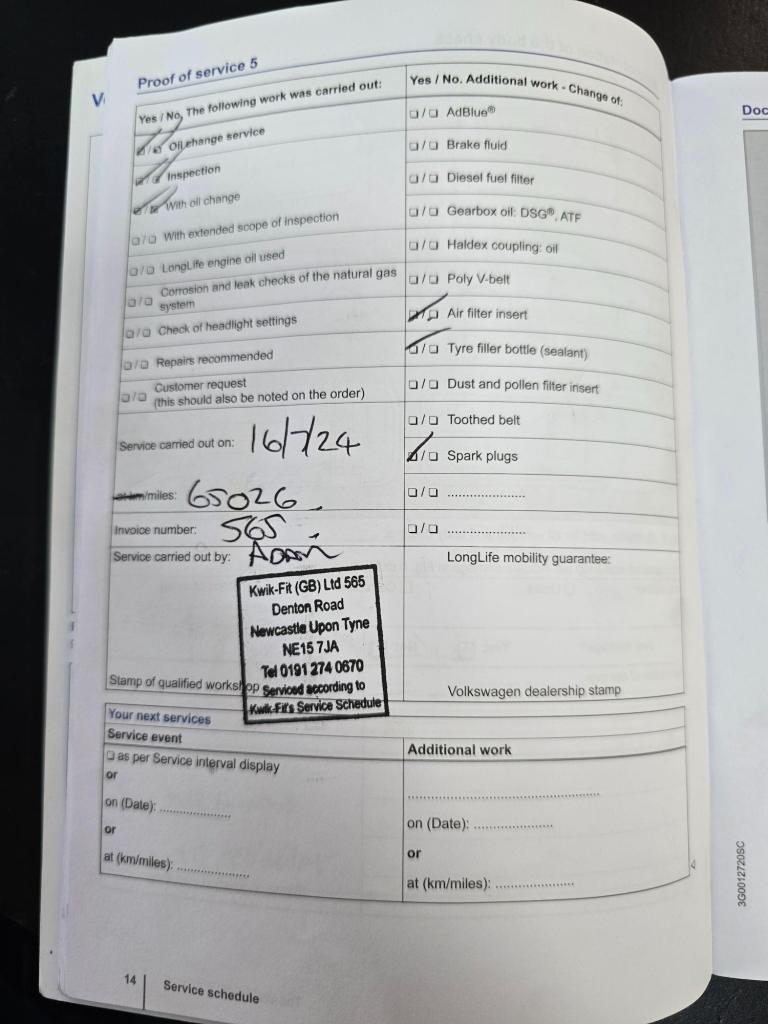 Proof of service 5
Yes / No, The following work was carried out:
❑/❑ Oil change service
❑/❑ Inspection
❑/❑ With oil change
❑/❑ With extended scope of inspection
❑/❑ LongLife engine oil used
❑/❑ Corrosion and leak checks of the natural gas
system
❑/❑ Check of headlight settings
❑/❑ Repairs recommended
❑/❑ Customer request
(this should also be noted on the order)
Service carried out on: 16/7/24
at km/miles: 65026
Invoice number: 565
Service carried out by: ADAM
Kwik-Fit (GB) Ltd 565
Denton Road
Newcastle Upon Tyne
NE15 7JA
Tel 0191 274 0670
Serviced according to
Kwik-Fit's Service Schedule
Stamp of qualified workshop
Yes / No. Additional work - Change of:
❑/❑ AdBlue®
❑/❑ Brake fluid
❑/❑ Diesel fuel filter
❑/❑ Gearbox oil: DSG®, ATF
❑/❑ Haldex coupling: oil
❑/❑ Poly V-belt
❑/❑ Air filter insert
❑/❑ Tyre filler bottle (sealant)
❑/❑ Dust and pollen filter insert
❑/❑ Toothed belt
❑/❑ Spark plugs
❑/❑ ......................
❑/❑ ......................
LongLife mobility guarantee:
Volkswagen dealership stamp
Your next services
Service event
❑ as per Service interval display
or
on (Date): ....................
or
at (km/miles): ....................
Additional work
..................................................
on (Date): ......................
or
at (km/miles): ......................
14 Service schedule
Doc
3G0012720SC